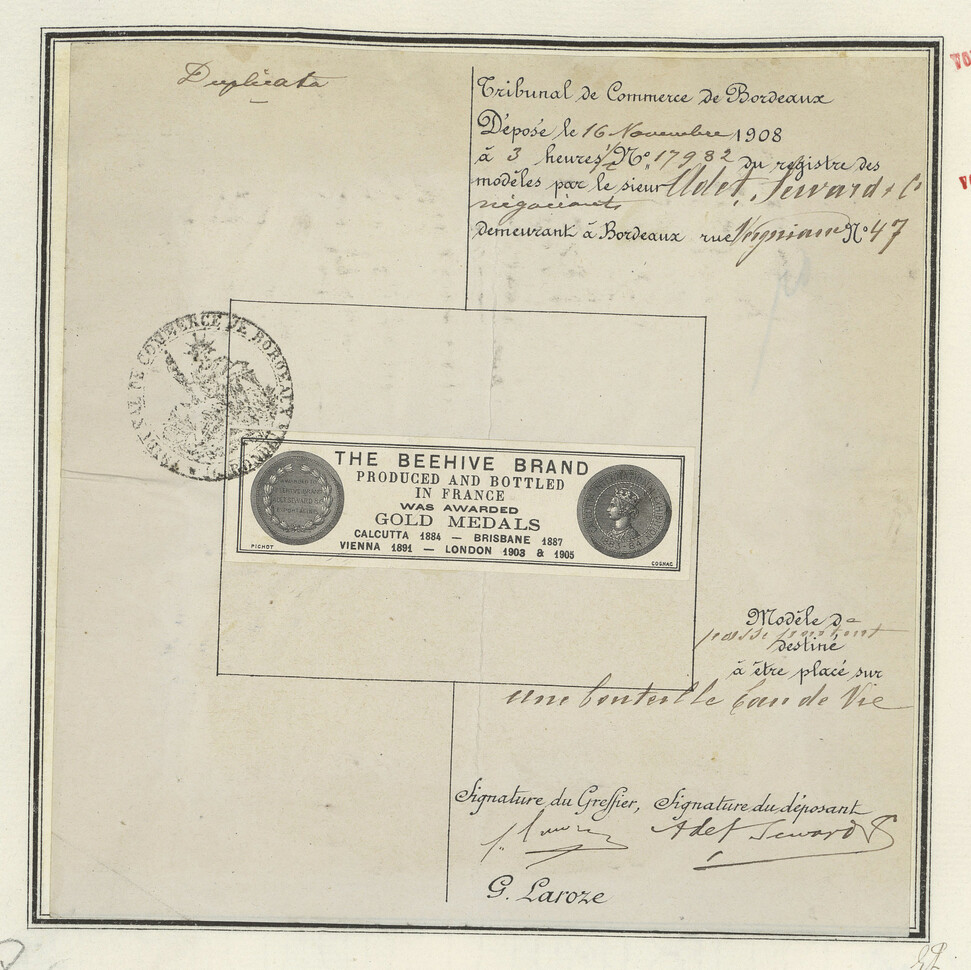 Duplicata
Tribunal de Commerce de Bordeaux
Déposé le 16 Novembre 1908
à 3 heures 1/2 No. 17982 du registre des
modèles par le sieur Adet, Seward & Co
négociants
demeurant à Bordeaux rue No 47
TRIBUNAL DE COMMERCE DE BORDEAUX
THE BEEHIVE BRAND
PRODUCED AND BOTTLED
IN FRANCE
WAS AWARDED
GOLD MEDALS
CALCUTTA 1884 — BRISBANE 1887
VIENNA 1891 — LONDON 1903 & 1905
PICHOT
COGNAC
Modèle de
passe partout
destiné
à être placé sur
une bouteille Eau de Vie
Signature du Greffier, Signature du déposant
Adet Seward
G. Laroze